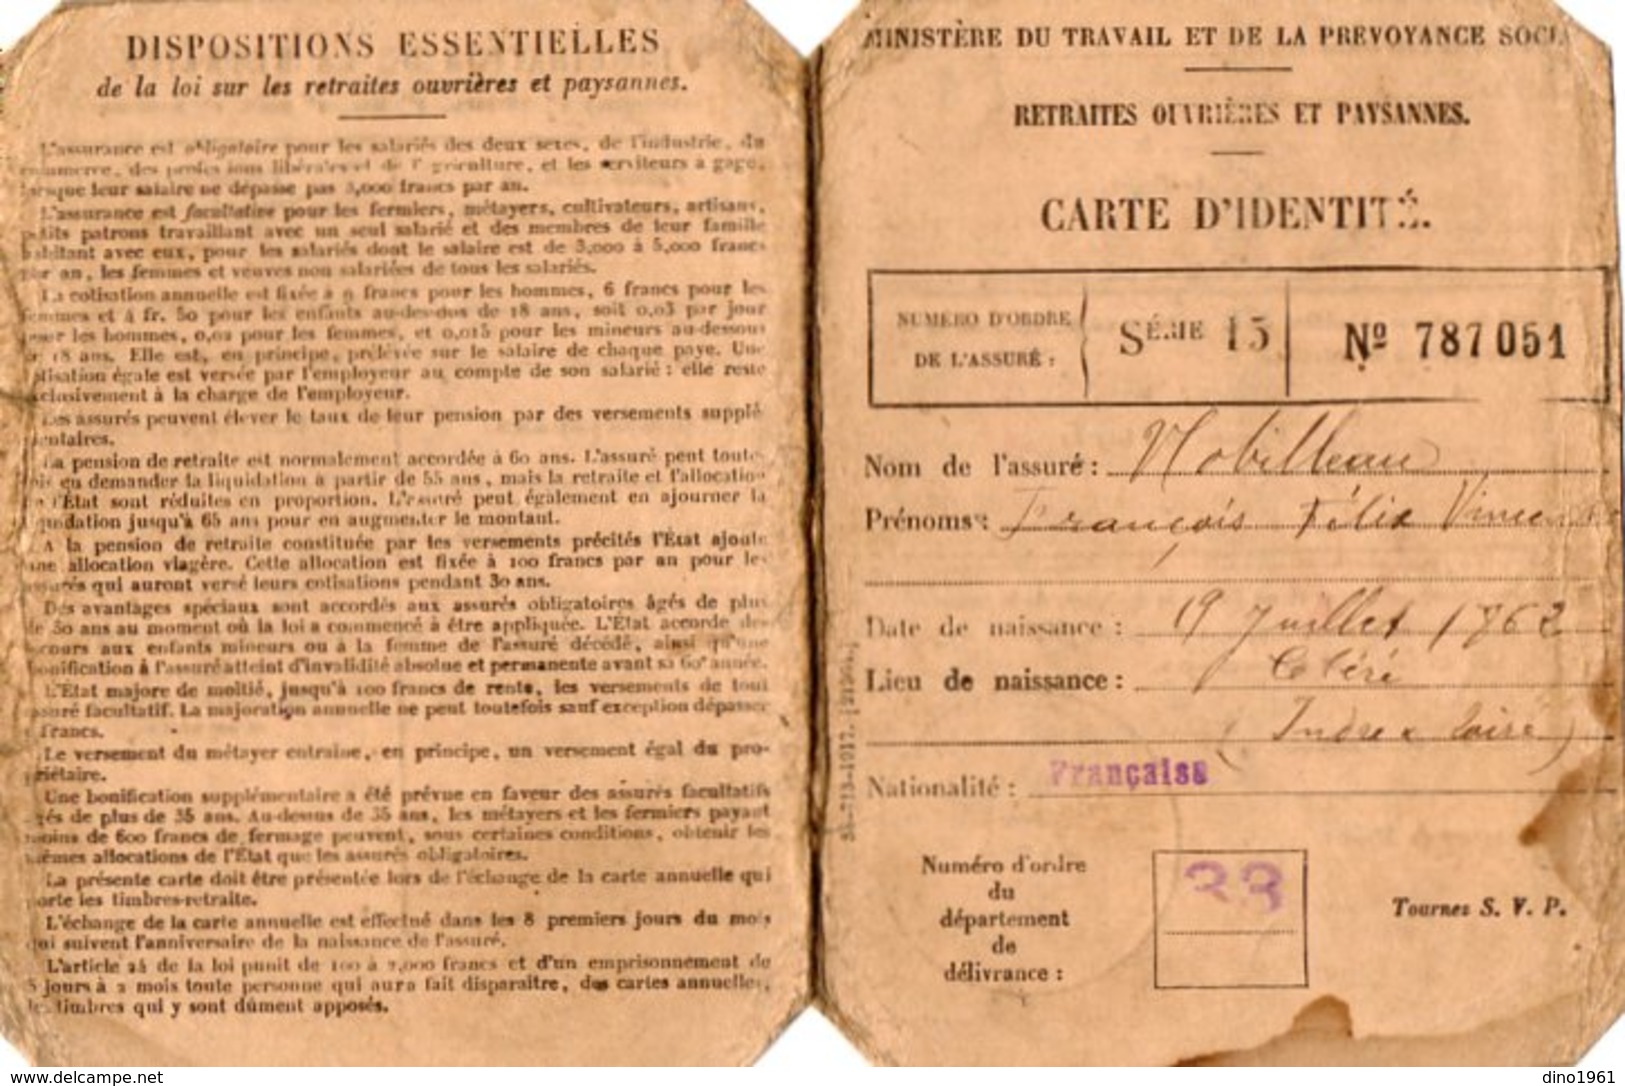 DISPOSITIONS ESSENTIELLES
de la loi sur les retraites ouvrières et paysannes.
L'assurance est obligatoire pour les salariés des deux sexes, de l'industrie, du
commerce, des professions libérales et de l'agriculture, et les serviteurs a gage,
lorsque leur salaire ne dépasse pas 3,000 francs par an.
L'assurance est facultative pour les fermiers, métayers, cultivateurs, artisans,
petits patrons travaillant avec un seul salarié et des membres de leur famille
habitant avec eux, pour les salariés dont le salaire est de 3,000 à 5,000 francs
par an, les femmes et veuves non salariées de tous les salariés.
La cotisation annuelle est fixée à 9 francs pour les hommes, 6 francs pour les
femmes et 4 fr. 50 pour les enfants au-dessous de 18 ans, soit 0,03 par jour
pour les hommes, 0,02 pour les femmes, et 0,015 pour les mineurs au-dessous
de 18 ans. Elle est, en principe, prélevée sur le salaire de chaque paye. Une
cotisation égale est versée par l'employeur au compte de son salarié : elle reste
exclusivement à la charge de l'employeur.
Les assurés peuvent élever le taux de leur pension par des versements supplé-
mentaires.
La pension de retraite est normalement accordée à 60 ans. L'assuré peut toute-
fois en demander la liquidation à partir de 55 ans, mais la retraite et l'allocation
de l'État sont réduites en proportion. L'assuré peut également en ajourner la
liquidation jusqu'à 65 ans pour en augmenter le montant.
A la pension de retraite constituée par les versements précités l'État ajoute
une allocation viagère. Cette allocation est fixée à 100 francs par an pour les
assurés qui auront versé leurs cotisations pendant 30 ans.
Des avantages spéciaux sont accordés aux assurés obligatoires âgés de plus
de 30 ans au moment où la loi a commencé à être appliquée. L'État accorde des
secours aux enfants mineurs ou à la femme de l'assuré décédé, ainsi qu'une
bonification à l'assuré atteint d'invalidité absolue et permanente avant sa 60e année.
L'État majore de moitié, jusqu'à 100 francs de rente, les versements de tout
assuré facultatif. La majoration annuelle ne peut toutefois sauf exception dépasser
francs.
Le versement du métayer entraine, en principe, un versement égal du pro-
priétaire.
Une bonification supplémentaire a été prévue en faveur des assurés facultatifs
âgés de plus de 35 ans. Au-dessus de 35 ans, les métayers et les fermiers payant
moins de 600 francs de fermage peuvent, sous certaines conditions, obtenir les
mêmes allocations de l'État que les assurés obligatoires.
La présente carte doit être présentée lors de l'échange de la carte annuelle qui
porte les timbres-retraite.
L'échange de la carte annuelle est effectué dans les 8 premiers jours du mois
qui suivent l'anniversaire de la naissance de l'assuré.
L'article 24 de la loi punit de 100 à 2,000 francs et d'un emprisonnement de
5 jours à 2 mois toute personne qui aura fait disparaître, des cartes annuelles,
les timbres qui y sont dûment apposés.
MINISTÈRE DU TRAVAIL ET DE LA PREVOYANCE SOCI
RETRAITES OUVRIÈRES ET PAYSANNES.
CARTE D'IDENTITÉ.
NUMÉRO D'ORDRE
DE L'ASSURÉ :
SÉRIE 15
Nº 787051
Nom de l'assuré : Nobilleau
Prénoms : François Félix Vincent
Date de naissance : 19 Juillet 1862
Lieu de naissance : Cléré
(Indre & Loire)
Nationalité : Française
Numéro d'ordre
du
département
de
délivrance :
33
Tournez S. V. P.
www.delcampe.net
dino1961